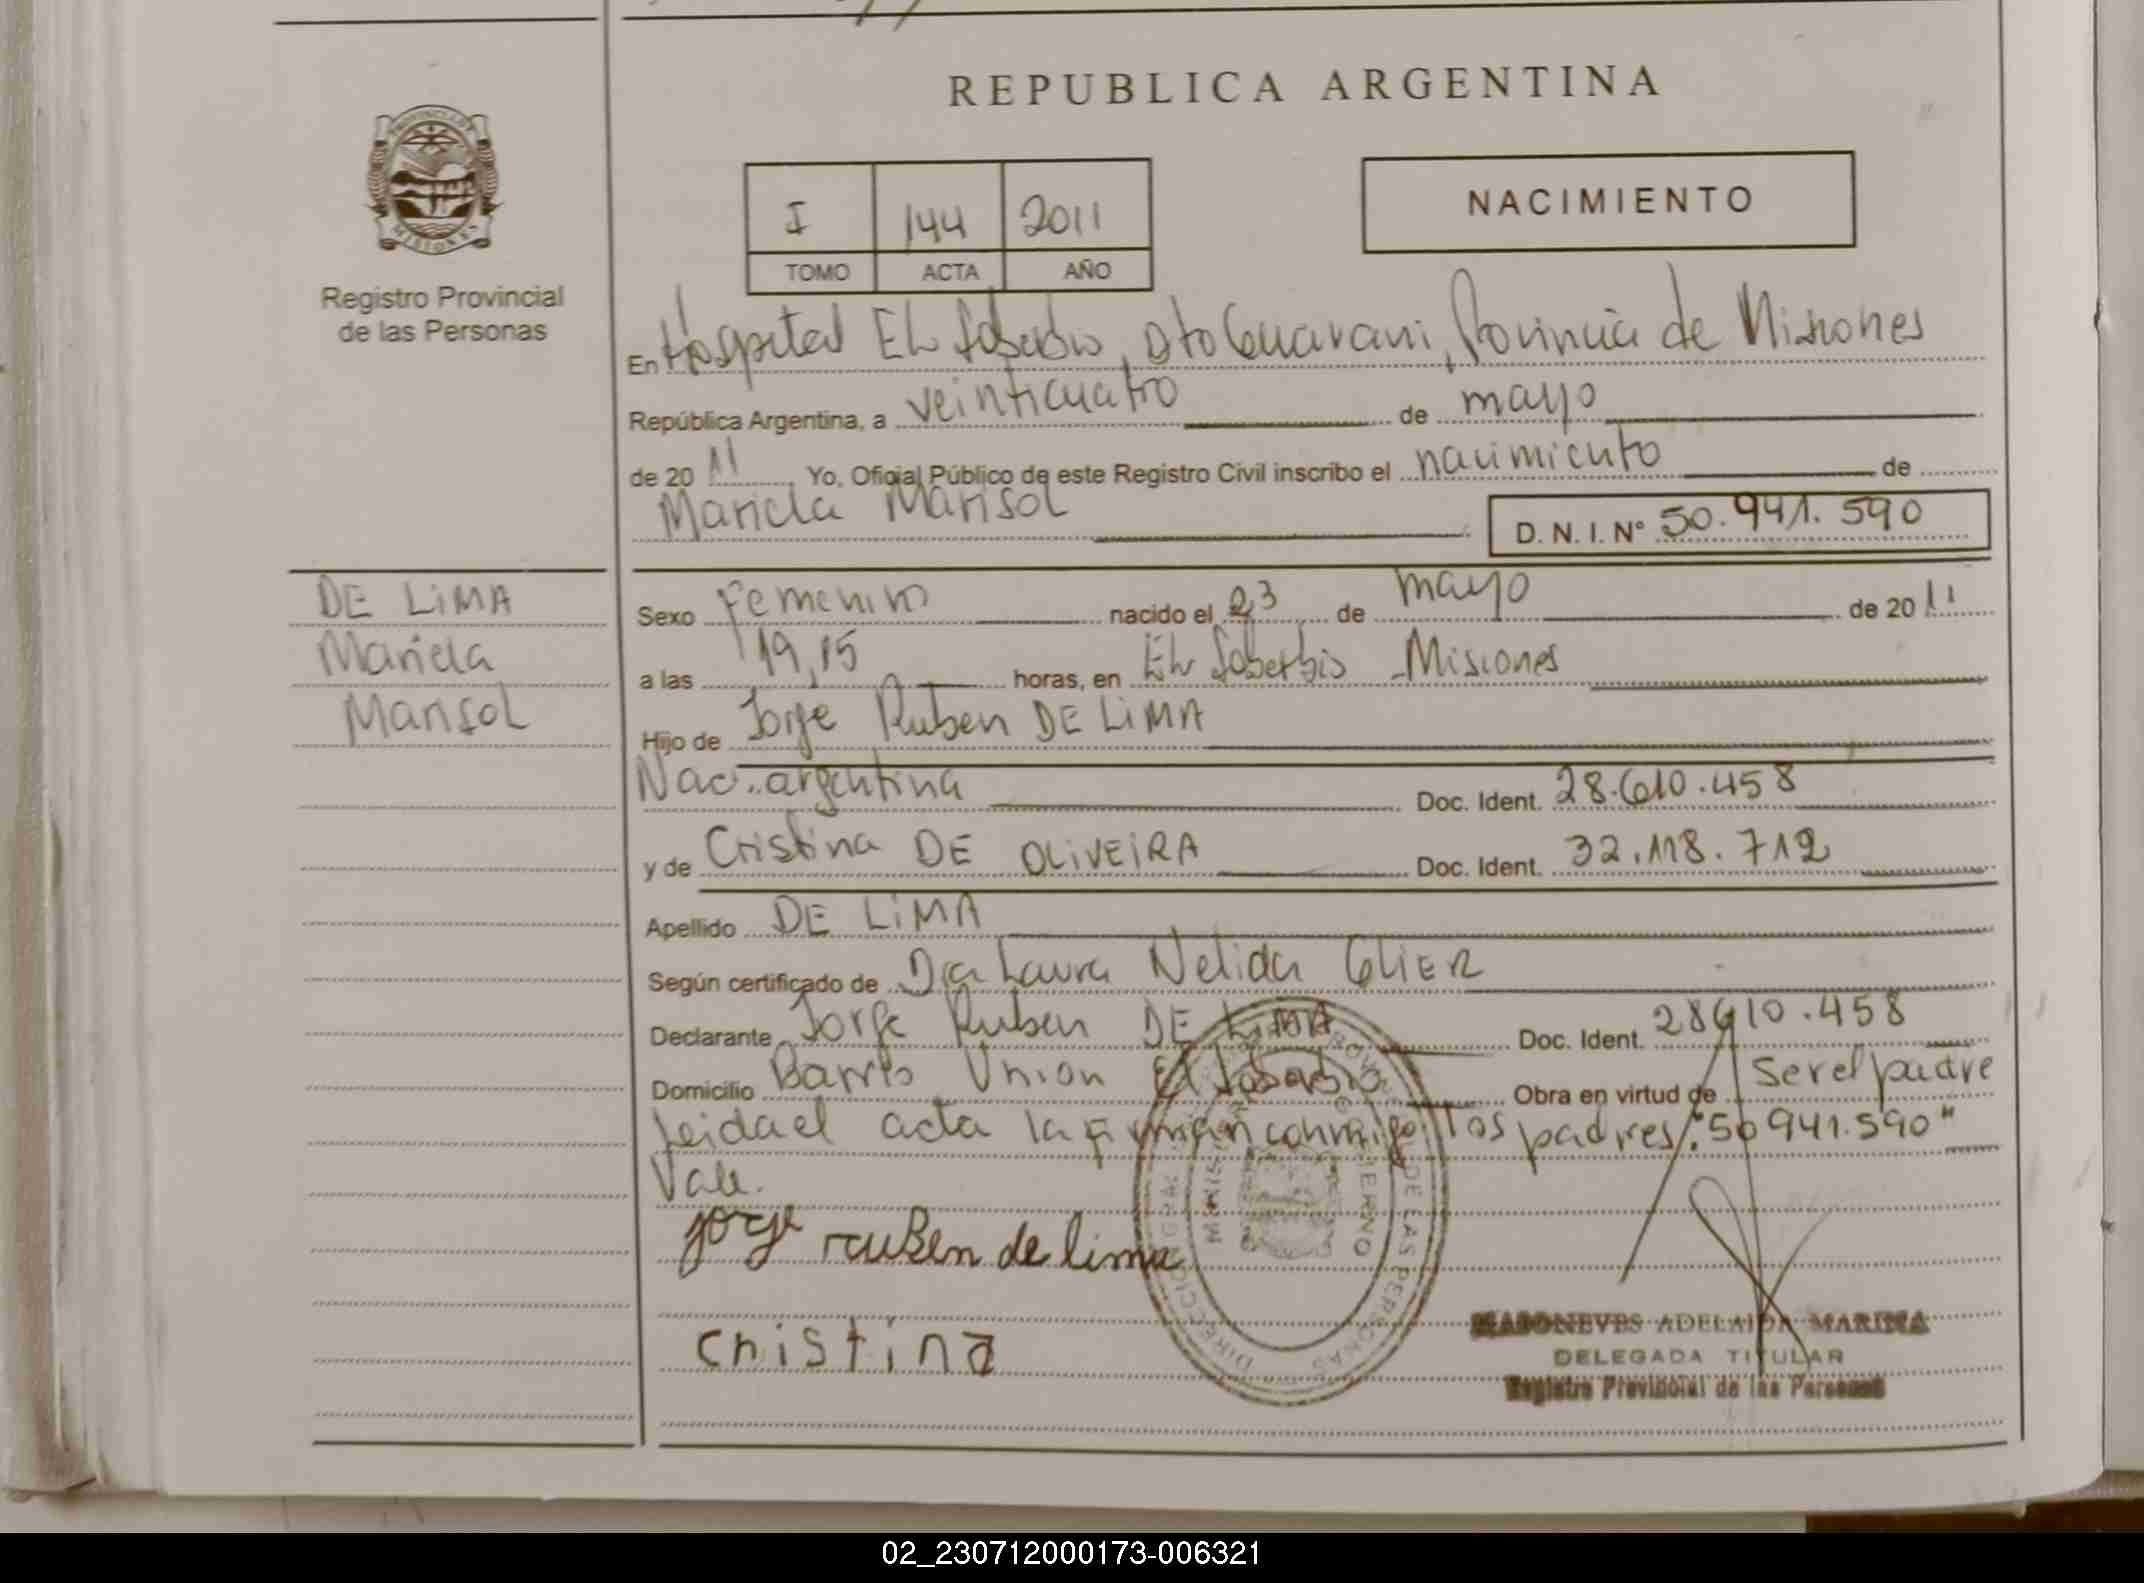 REPUBLICA ARGENTINA
PROVINCIA DE
MISIONES
Registro Provincial
de las Personas
I 144 2011
TOMO ACTA AÑO
NACIMIENTO
En Hospital El Soberbio, Dto Guarani, Provincia de Misiones
República Argentina, a veinticuatro de mayo
de 2011 Yo, Oficial Público de este Registro Civil inscribo el nacimiento de
Mariela Marisol
D. N. I. N° 50.941.590
DE LiMA
Mariela
Marisol
Sexo Femenino nacido el 23 de mayo de 2011
a las 19,15 horas, en El Soberbio - Misiones
Hijo de Jorge Ruben DE LiMA
Nac. argentina Doc. Ident. 28.610.458
y de Cristina DE OLiVEiRA Doc. Ident. 32.118.712
Apellido DE LiMA
Según certificado de Dra Laura Nelida GLIER
Declarante Jorge Ruben DE LIMA Doc. Ident. 28610.458
Domicilio Barrio Union El Soberbio Obra en virtud de ser el padre
Leida el acta la firman conmigo los padres, "50941.590"
Vale.
jorge ruBen de lima
cristina
ADELAIDA MARINA
DELEGADA TITULAR
Registro Provincial de las Personas
02_230712000173-006321